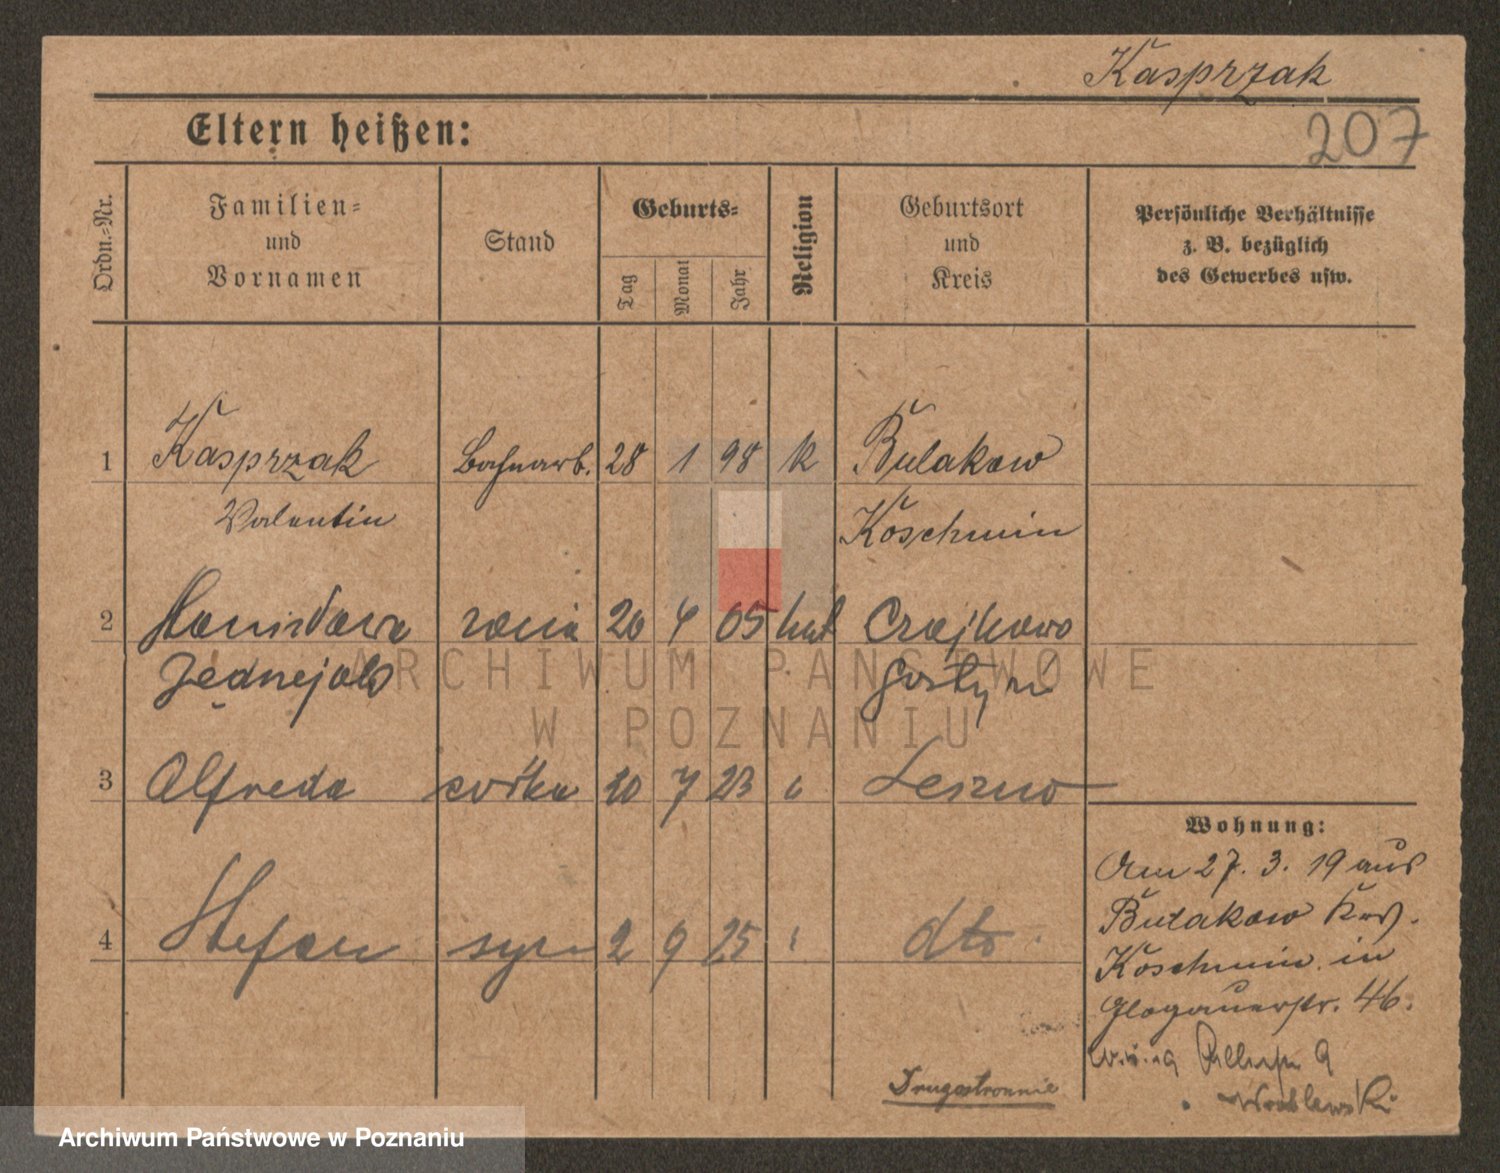 Kasprzak
207
Eltern heißen:
Ordn.-Nr.
Familien-
und
Vornamen
Stand
Geburts-
Tag
Monat
Jahr
Religion
Geburtsort
und
Kreis
Persönliche Verhältnisse
z. B. bezüglich
des Gewerbes usw.
1 Kasprzak Bahnarb. 28 1 98 k Bulakow
Valentin Koschmin
2 Stanisława żona 20 4 05 kat Czajkowo
Gostyń
3 Alfreda córka 10 7 23 Leszno
Wohnung:
Am 27. 3. 19 aus
Bulakow Krs.
Koschmin in
Glogauerstr. 46.
4 Stefan syn 2 9 25 dto
Wroblewski
Drugostronnie
ARCHIWUM PAŃSTWOWE
W POZNANIU
Archiwum Państwowe w Poznaniu